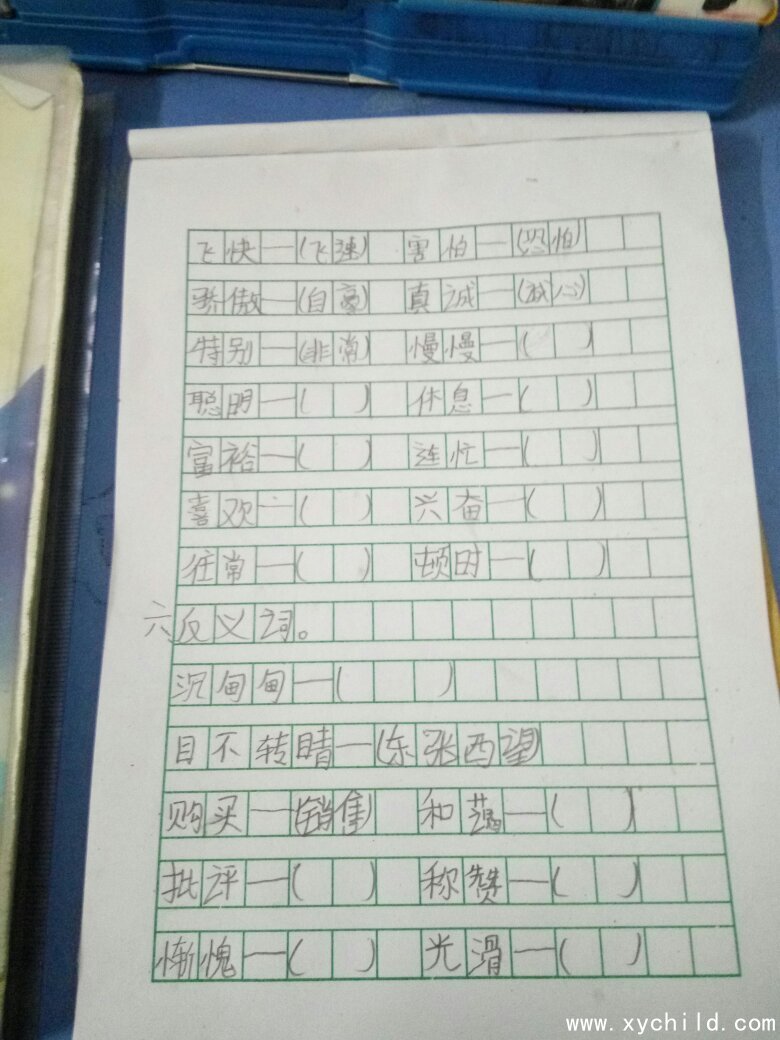 飞快—(飞速) 害怕—(恐怕)
骄傲—(自豪) 真诚—(诚心)
特别—(非常) 慢慢—( )
聪明—( ) 休息—( )
富裕—( ) 连忙—( )
喜欢—( ) 兴奋—( )
往常—( ) 顿时—( )
六反义词。
沉甸甸—( )
目不转睛—(东张西望)
购买—(销售) 和蔼—( )
批评—( ) 称赞—( )
惭愧—( ) 光滑—( )
www.xychild.com